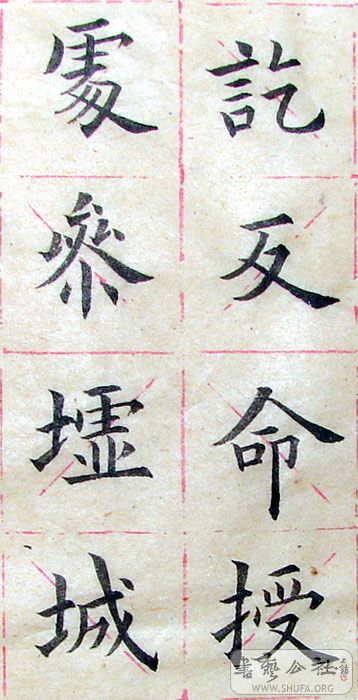 訖反命授
處參墟城
書藝公社
WWW.SHUFA.ORG